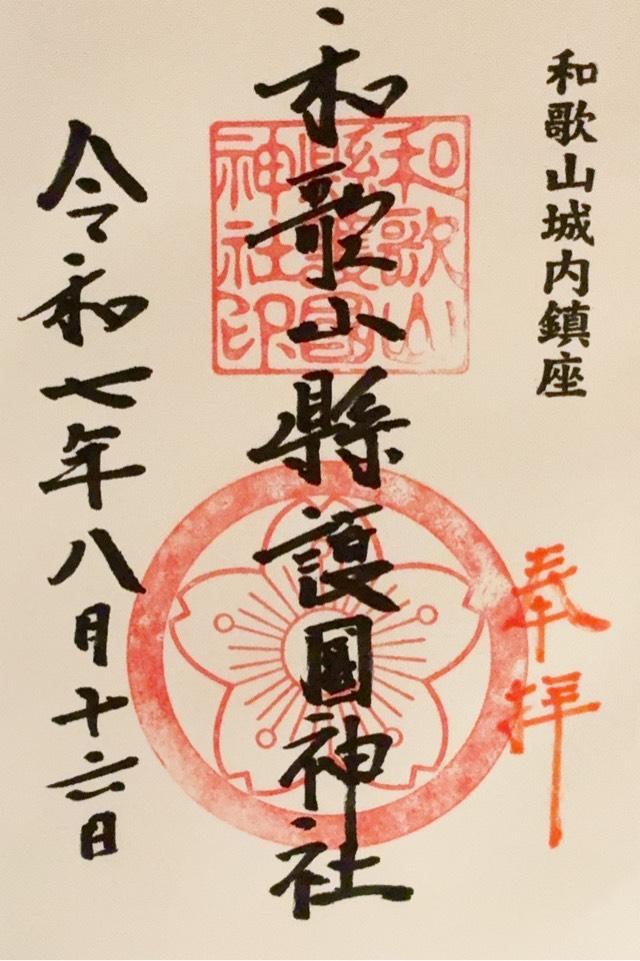 和歌山城内鎮座
奉拝
和歌山縣護國神社
和歌山
縣護國
神社印
令和七年八月十六日